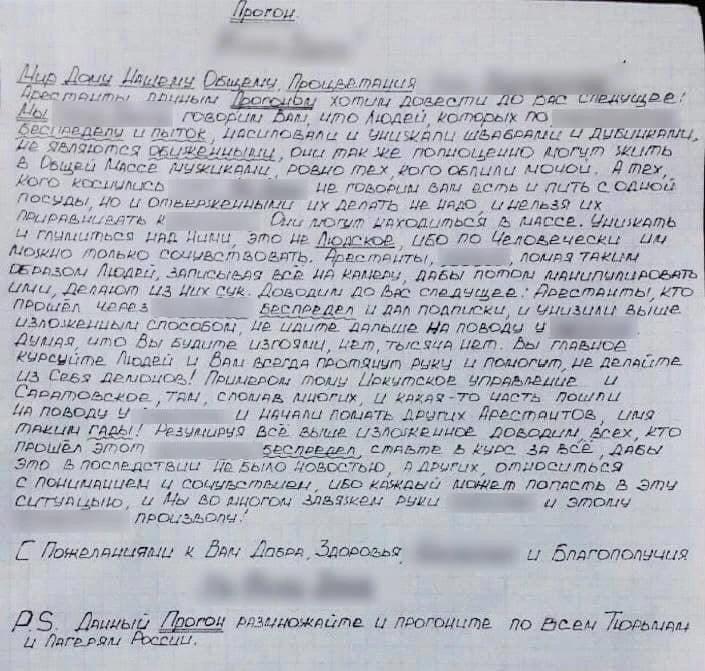 Прогон.
Мир Дому Нашему Общему, Процветания
Арестанты данным Прогоном хотим довести до Вас следущее!
Мы говорим Вам, что людей, которых по
беспределу и пыток, насиловали и унижали швабрами и дубинками,
не являются обиженными, они так же полноценно могут жить
в Общей Массе мужиками, ровно тех кого облили мочой. А тех,
кого коснулись не говорим вам есть и пить с одной
посуды, но и отверженными их делать не надо, и нельзя их
приравнивать к Они могут находиться в массе. Унижать
и глумиться над ними, это не Людское, ибо по Человечески им
можно только сочувствовать. Арестанты, ломая таким
образом людей, записывая всё на камеру, дабы потом манипулировать
ими, делают из них сук. Доводим до Вас следущее: Арестанты, кто
прошёл через беспредел и дал подписки, и унизили выше
изложенным способом, не идите дальше на поводу у
думая, что Вы будите изгоями, нет, тысяча нет. Вы главное
курсуйте Людей и Вам всегда протянут руку и помогут, не делайте
из Себя демонов! Примером тому Иркутское управление и
Саратовское, там, сломав многих, и какая-то часть пошли
на поводу у и начали ломать других Арестантов, имя
таким гады! Резумируя всё выше изложенное доводим, всех, кто
прошёл этот беспредел, ставте в курс за всё, дабы
это в последствии не было новостью, а других, относиться
с пониманием и сочувствием, ибо каждый может попасть в эту
ситуацыю, и Мы во многом завяжем руки и этому
произволу!
С Пожеланиями к Вам Добра, Здоровья, и Благополучия
P.S. Данный Прогон размножайте и прогоните по всем Тюрьмам
и Лагерям России.